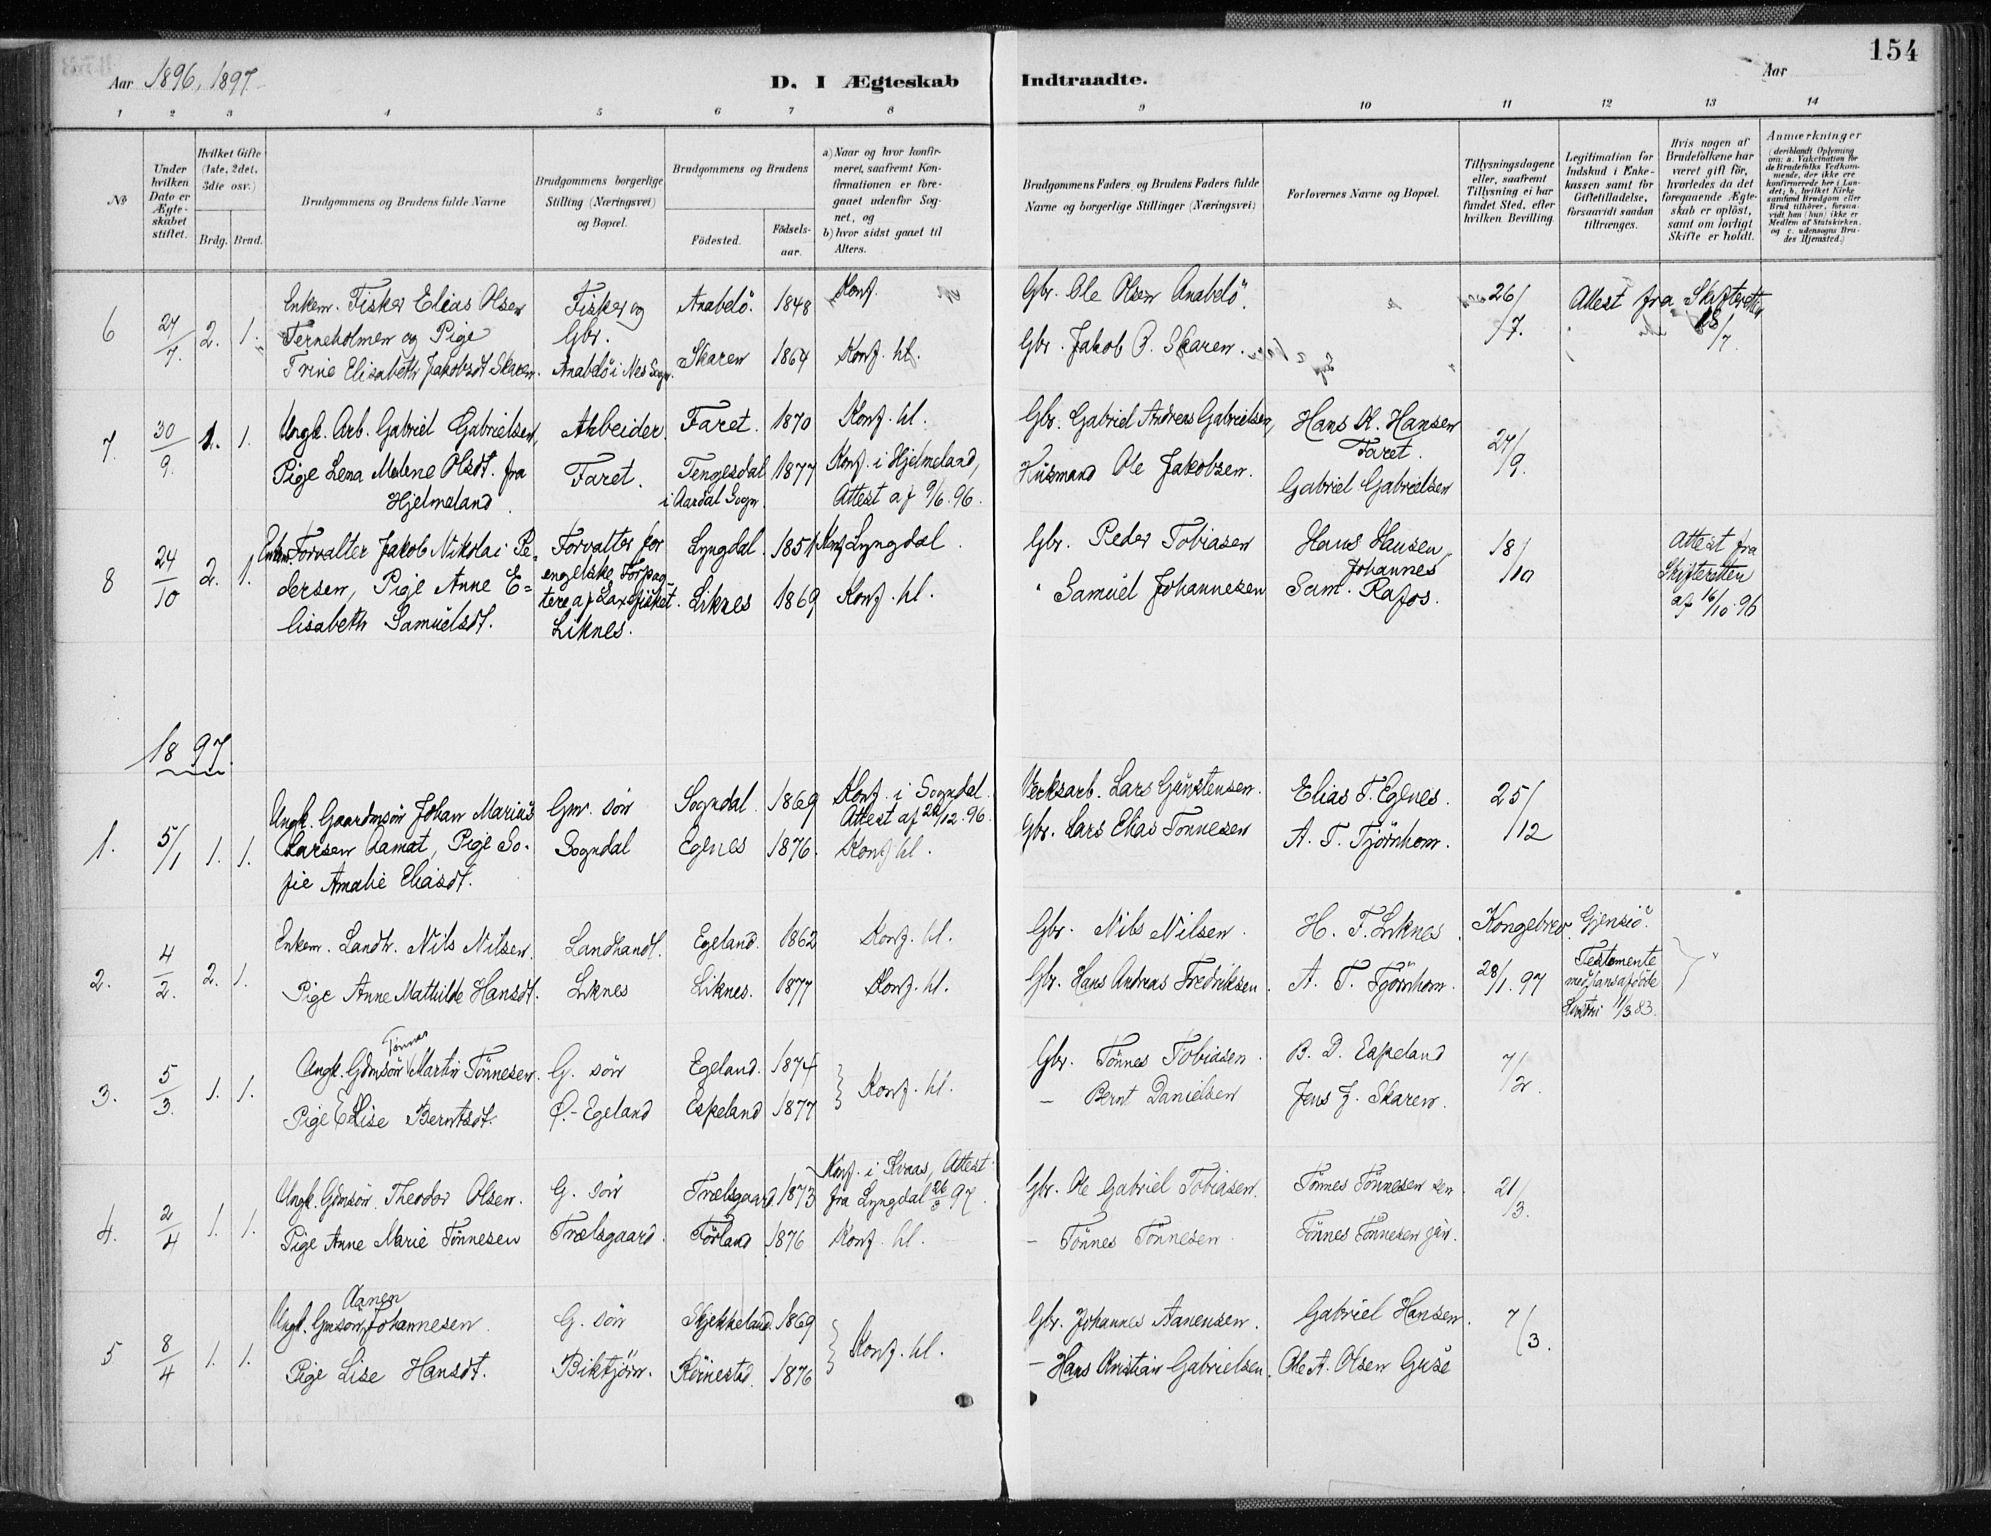 154
Aar 1896, 1897.
D. I Ægteskab Indtraadte.
Aar
1 2 3 4 5 6 7 8 9 10 11 12 13 14
№
Under hvilken Dato er Ægteskabet stiftet.
Hvilket Gifte (1ste, 2det, 3die osv.)
Brdg. Brud.
Brudgommens og Brudens fulde Navne
Brudgommens borgerlige Stilling (Næringsvei) og Bopæl.
Brudgommens og Brudens
Fødested. Fødselsaar.
a) Naar og hvor konfirmeret, saafremt Konfirmationen er foregaaet udenfor Sognet, og
b) hvor sidst gaaet til Alters.
Brudgommens Faders og Brudens Faders fulde Navne og borgerlige Stillinger (Næringsvei)
Forlovernes Navne og Bopæl.
Tillysningsdagene eller, saafremt Tillysning ei har fundet Sted, efter hvilken Bevilling.
Legitimation for Indskud i Enkekassen samt for Giftetilladelse, forsaavidt saadan tiltrænges.
Hvis nogen af Brudefolkene har været gift før, hvorledes da det foregaaende Ægteskab er opløst, samt om lovligt Skifte er holdt.
Anmærkninger (deriblandt Oplysning om: a. Vakcination for de Brudefolks Vedkommende, der ikke ere konfirmerede her i Landet; b. hvilket Kirkesamfund Brudgom eller Brud tilhører, forsaavidt han (hun) ikke er Medlem af Statskirken, og c. udensogns Brudes Hjemsted.)
6 27/7. 2. 1.
Enkem. Fisker Elias Olsen
Terneholmen og Pige
Trine Elisabeth Jakobsdt Skaren.
Fisker og
Gbr.
Anabelö i Nes Sogn.
Anabelö. 1848 Konf.
Skaren 1864 Konf. hl.
Gbr. Ole Olsen Anabelö.
Gbr. Jakob O. Skaren.
26/7.
Attest fra Skifteretten
18/7
7. 30/9. 1. 1.
Ungk. Arb. Gabriel Gabrielsen,
Pige Lena Malene Olsdt. fra
Hjelmeland.
Arbeider.
Faret.
Faret. 1870 Konf. hl.
Tengesdal 1877 Konf. i Hjelmeland,
i Aardal Sogn Attest af 9/6. 96.
Gbr. Gabriel Andreas Gabrielsen,
Husmand Ole Jakobsen.
Hans K. Hansen
Faret.
Gabriel Gabrielsen
27/9.
8 24/10 2. 1.
Enkem. Forvalter Jakob Nikolai Pe-
dersen, Pige Anne E-
lisabeth Samuelsdt.
Forvalter for
engelske Forpag-
tere af Laxefisket.
Liknes.
Lyngdal. 1851 Konf. Lyngdal.
Liknes 1869 Konf. hl.
Gbr. Peder Tobiasen
" Samuel Johannesen
Hans Hansen
Johannes
Sam. Rafos.
18/10
Attest fra
Skifteretten
af 16/10. 96
1897.
1. 5/1 1. 1.
Ungk. Gaardmsön Johan Marius
Larsen Aamot, Pige So-
fie Amalie Eliasdt.
Gm. sön
Sogndal
Sogndal. 1869 Konf. i Sogndal.
Attest af 22/12. 96.
Egenes 1876. Konf hl.
Verksarb. Lars Guustensen.
Gbr. Lars Elias Tönnesen
Elias T. Egenes.
A. T. Tjörnhom.
25/12
2. 4/2. 2. 1.
Enkem. Landh. Nils Nilsen.
Pige Anne Mathilde Hansdt.
Landhandl.
Liknes
Egeland. 1862 Konf. hl.
Liknes. 1877 Konf. hl.
Gbr. Nils Nilsen.
Gbr. Hans Andreas Fredriksen.
H. F. Liknes.
A. T. Tjörnhom.
Kongebrev.
28/1. 97
Testamente
med hans afdöde
Hustru 11/3 83.
3. 5/3. 1. 1.
Tönnes
Ungk. Gdmsön Martin Tönnesen.
Pige Elise Berntsdt.
G. sön
Ö.-Egeland
Egeland. 1874
Espeland 1877
Konf. hl.
Gbr. Tönnes Tobiasen.
- Bernt Danielsen
B. D. Espeland
Jens J. Skaren.
7/2.
4. 2/4 1. 1.
Ungk. Gdmsön. Theodor Olsen.
Pige Anne Marie Tönnesen
G. sön
Trælsgaard.
Trælsgaard. 1873
Törland 1876
Konf. i Kvaas, Attest
fra Lyngdal 26/3 97.
Konf. hl.
Gbr. Ole Gabriel Tobiasen.
- Tönnes Tönnesen.
Tönnes Tönnesen sen
Tönnes Tönnesen jun.
21/3.
5 8/4 1. 1.
Aanen
Ungk. Gmsön Johannesen.
Pige Lise Hansdt.
G. sön
Biktjörn.
Skjekkeland. 1869
Röinestad. 1876
Konf. hl.
Gbr. Johannes Aanensen.
- Hans Kristian Gabrielsen.
Gabriel Hansen.
Ole A. Olsen Guse
7/3.